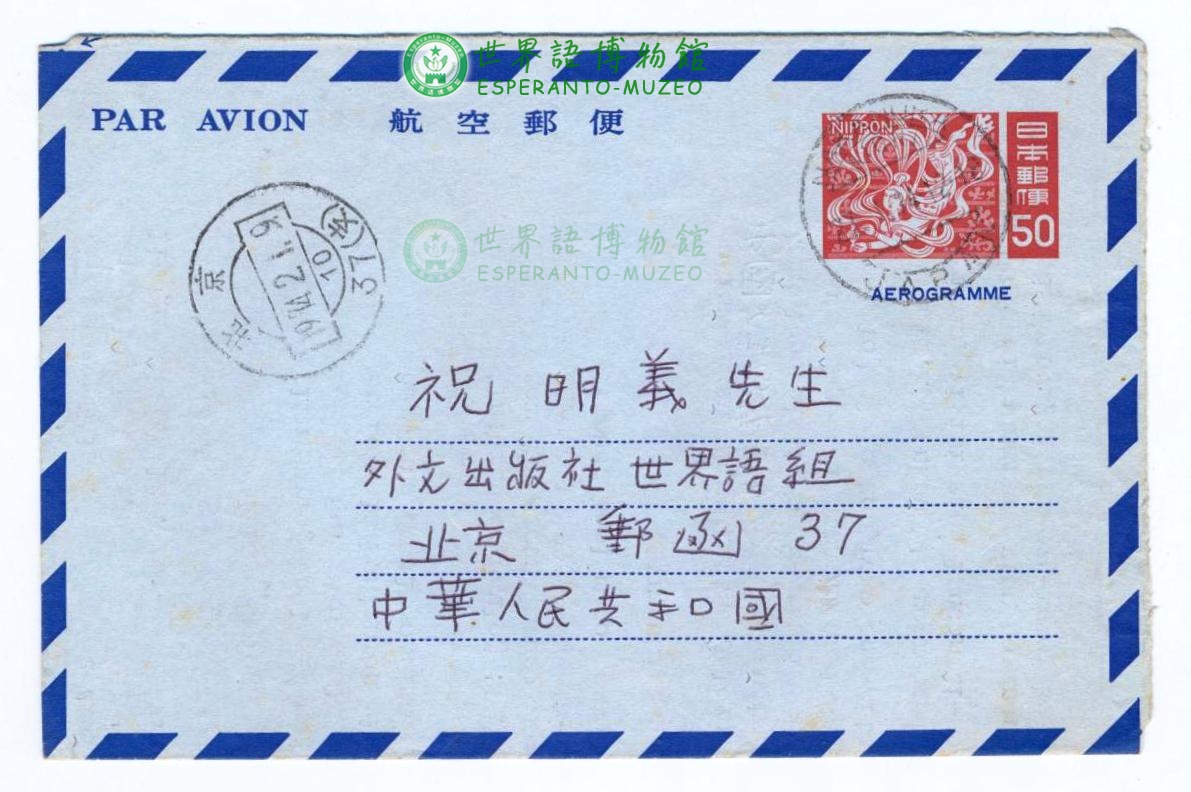 世界語博物館
ESPERANTO-MUZEO
PAR AVION 航空郵便
NIPPON
日本郵便
50
AEROGRAMME
北京
37(支)
10
世界語博物館
ESPERANTO-MUZEO
祝 明 義 先生
外文出版社 世界語組
北京 郵函 37
中華人民共和國